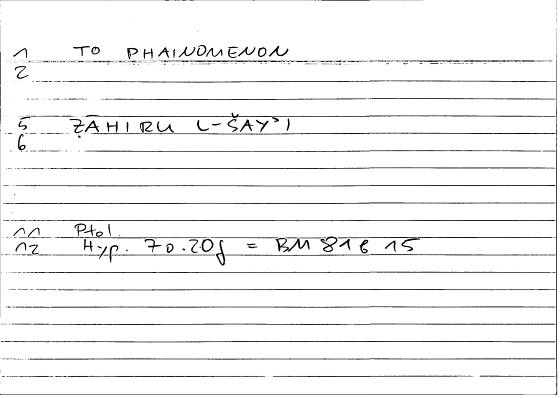 1 TO PHAINOMENON
2
5 ẒĀHIRU L-ŠAYʾI
6
11 Ptol.
12 Hyp. 70.20f = BM 81b 15